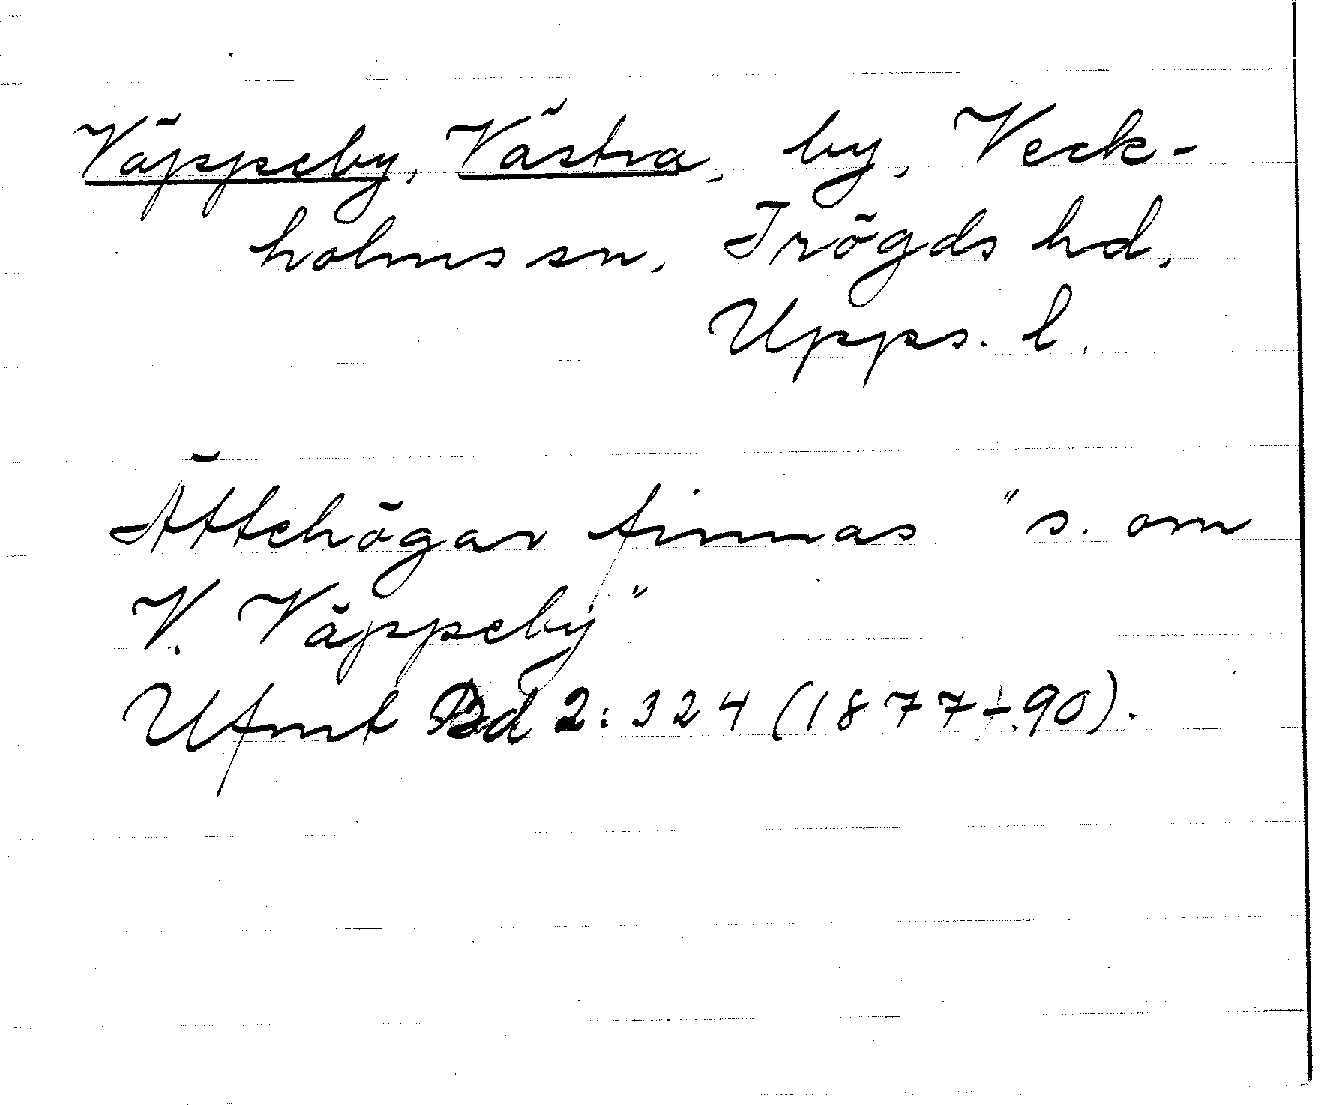 Väppeby, Västra, by, Veck-
holms sn, Trögds hd,
Upps. l.
Ättehögar finnas "s. om
V. Väppeby"
Ufmt Bd 2: 324 (1877-90).